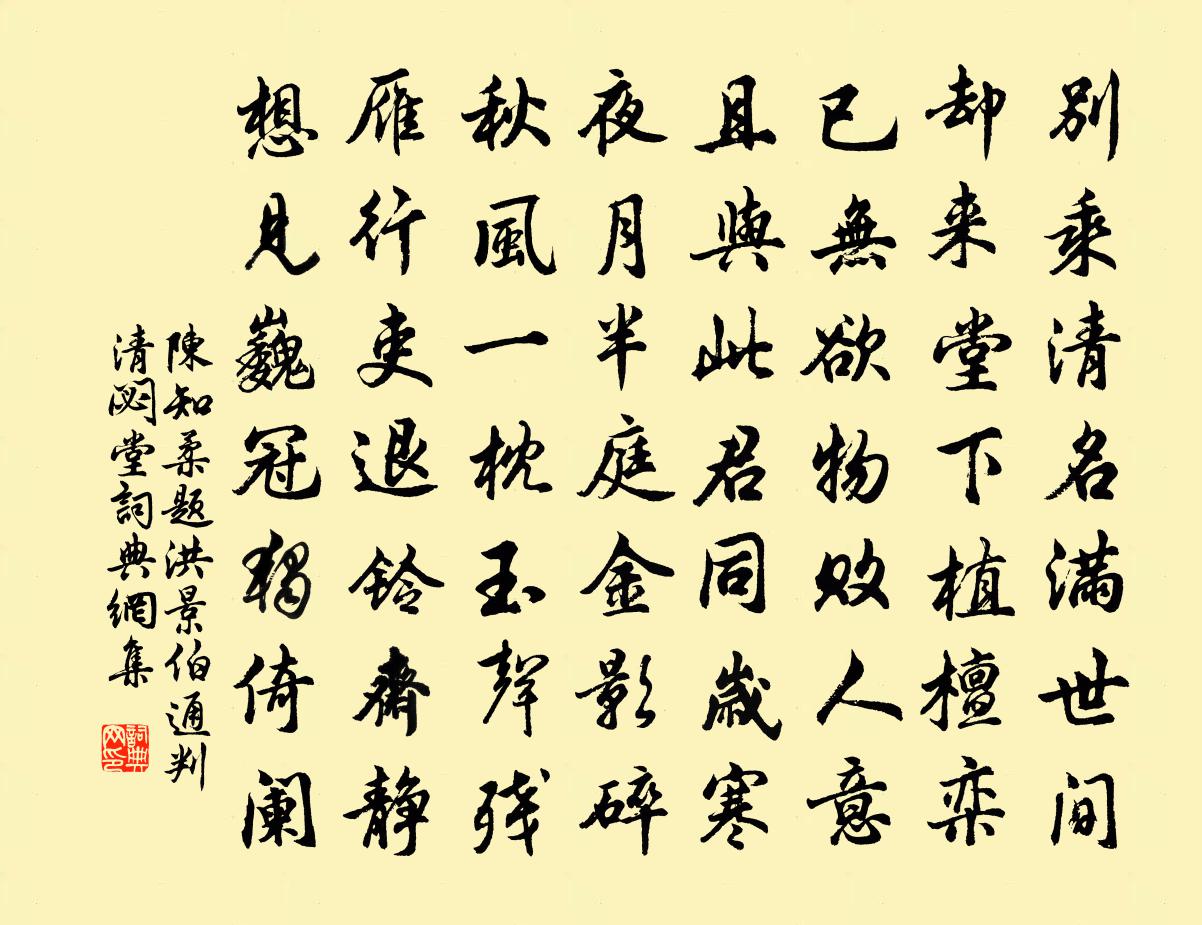 别乘清名满世间
却来堂下植檀栾
已無欲物败人意
且與此君同歲寒
夜月半庭金影碎
秋風一枕玉聲残
雁行吏退鈴齋静
想見巍冠獨倚阑
陳知柔题洪景伯通判
清閟堂詞典網集
詞典网印